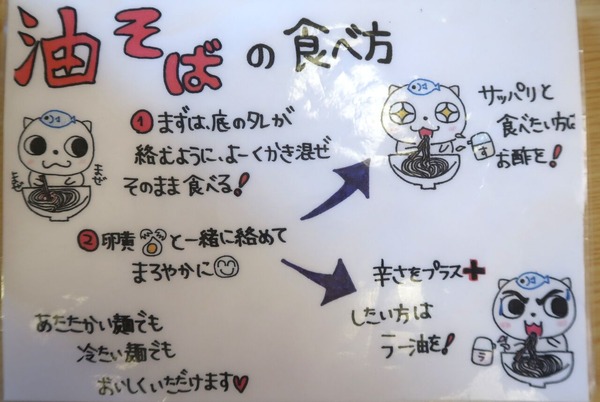 油そばの食べ方
① まずは、底のタレが
絡むように、よーくかき混ぜ
そのまま食べる！
まぜ
まぜ
② 卵黄と一緒に絡めて
まろやかに
サッパリと
食べたい方は
お酢を！
す
辛さをプラス＋
したい方は
ラー油を！
ラ
あたたかい麺でも
冷たい麺でも
おいしくいただけます♥